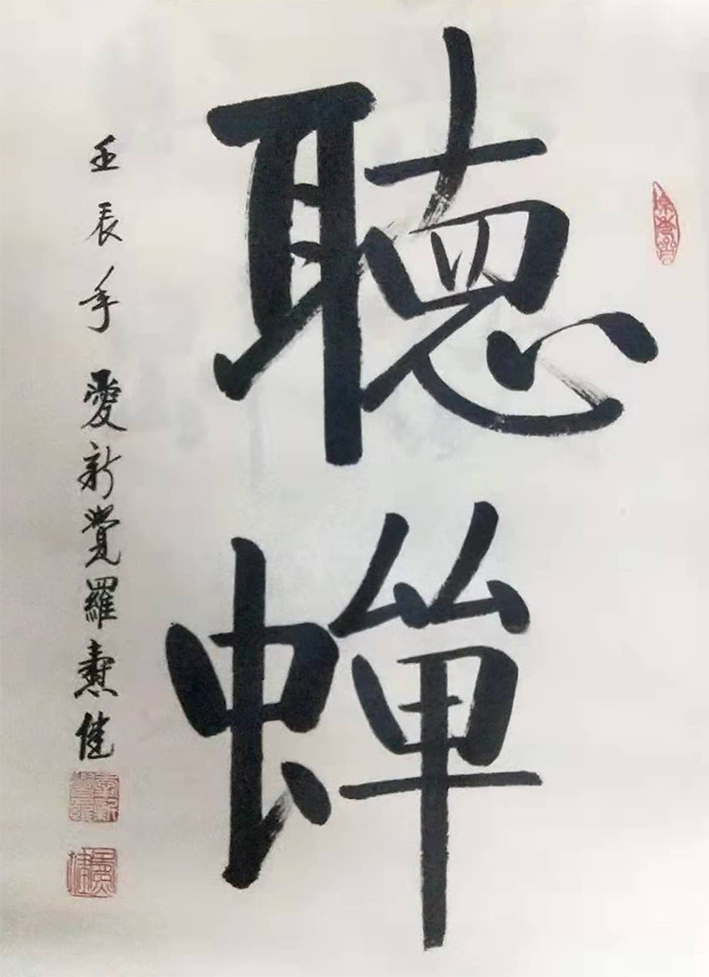 聽蟬
壬辰年愛新覺羅